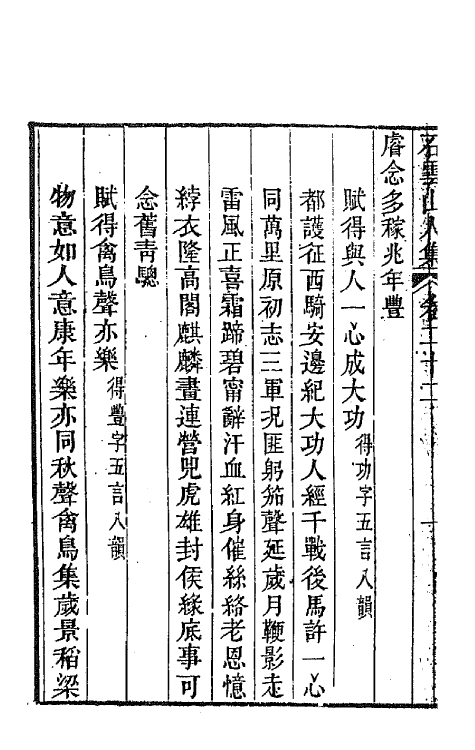 石雲山人集 卷二十二
睿念多稼兆年豐
賦得與人一心成大功 得功字五言八韻
都護征西騎安邊紀大功人經千戰後馬許一心
同萬里原初志三軍況匪躬笳聲延歲月鞭影走
雷風正喜霜蹄碧甯辭汗血紅身催絲絡老恩憶
綍衣隆高閣麒麟畫連營兕虎雄封侯緣底事可
念舊青驄
賦得禽鳥聲亦樂 得豐字五言八韻
物意如人意康年樂亦同秋聲禽鳥集歲景稻粱